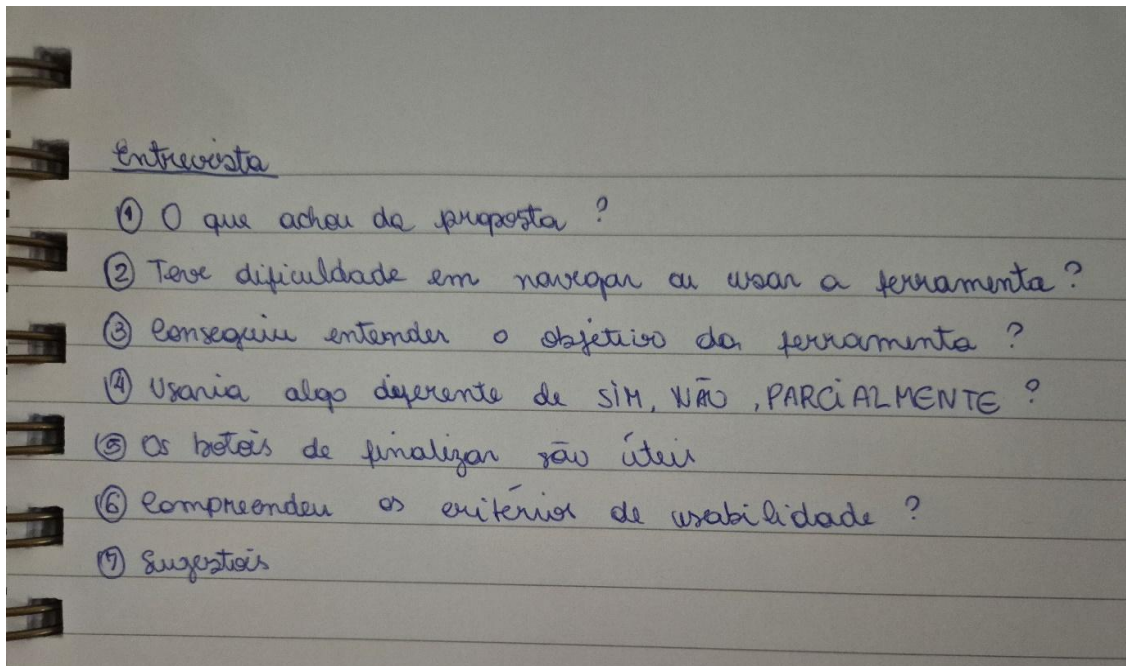 Entrevista
① O que achou da proposta ?
② Teve dificuldade em navegar ou usar a ferramenta ?
③ Conseguiu entender o objetivo da ferramenta ?
④ Usaria algo diferente de SIM, NÃO, PARCIALMENTE ?
⑤ Os botois de finalizar são úteis
⑥ Compreendeu os critérios de usabilidade ?
⑦ Sugestois